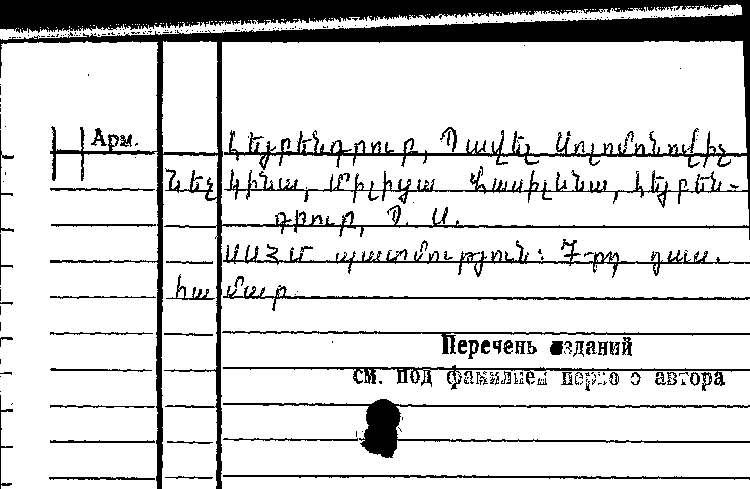 Арм.
Լեյբենգրուբ, Պավել Սոլոմոնովիչ
Նեչկինա, Միլիցա Վասիլևնա, Լեյբեն-
գրուբ, Պ. Ս.
ՍՍՀՄ պատմություն: 7-րդ դաս.
համար
Перечень изданий
см. под фамилией первого автора